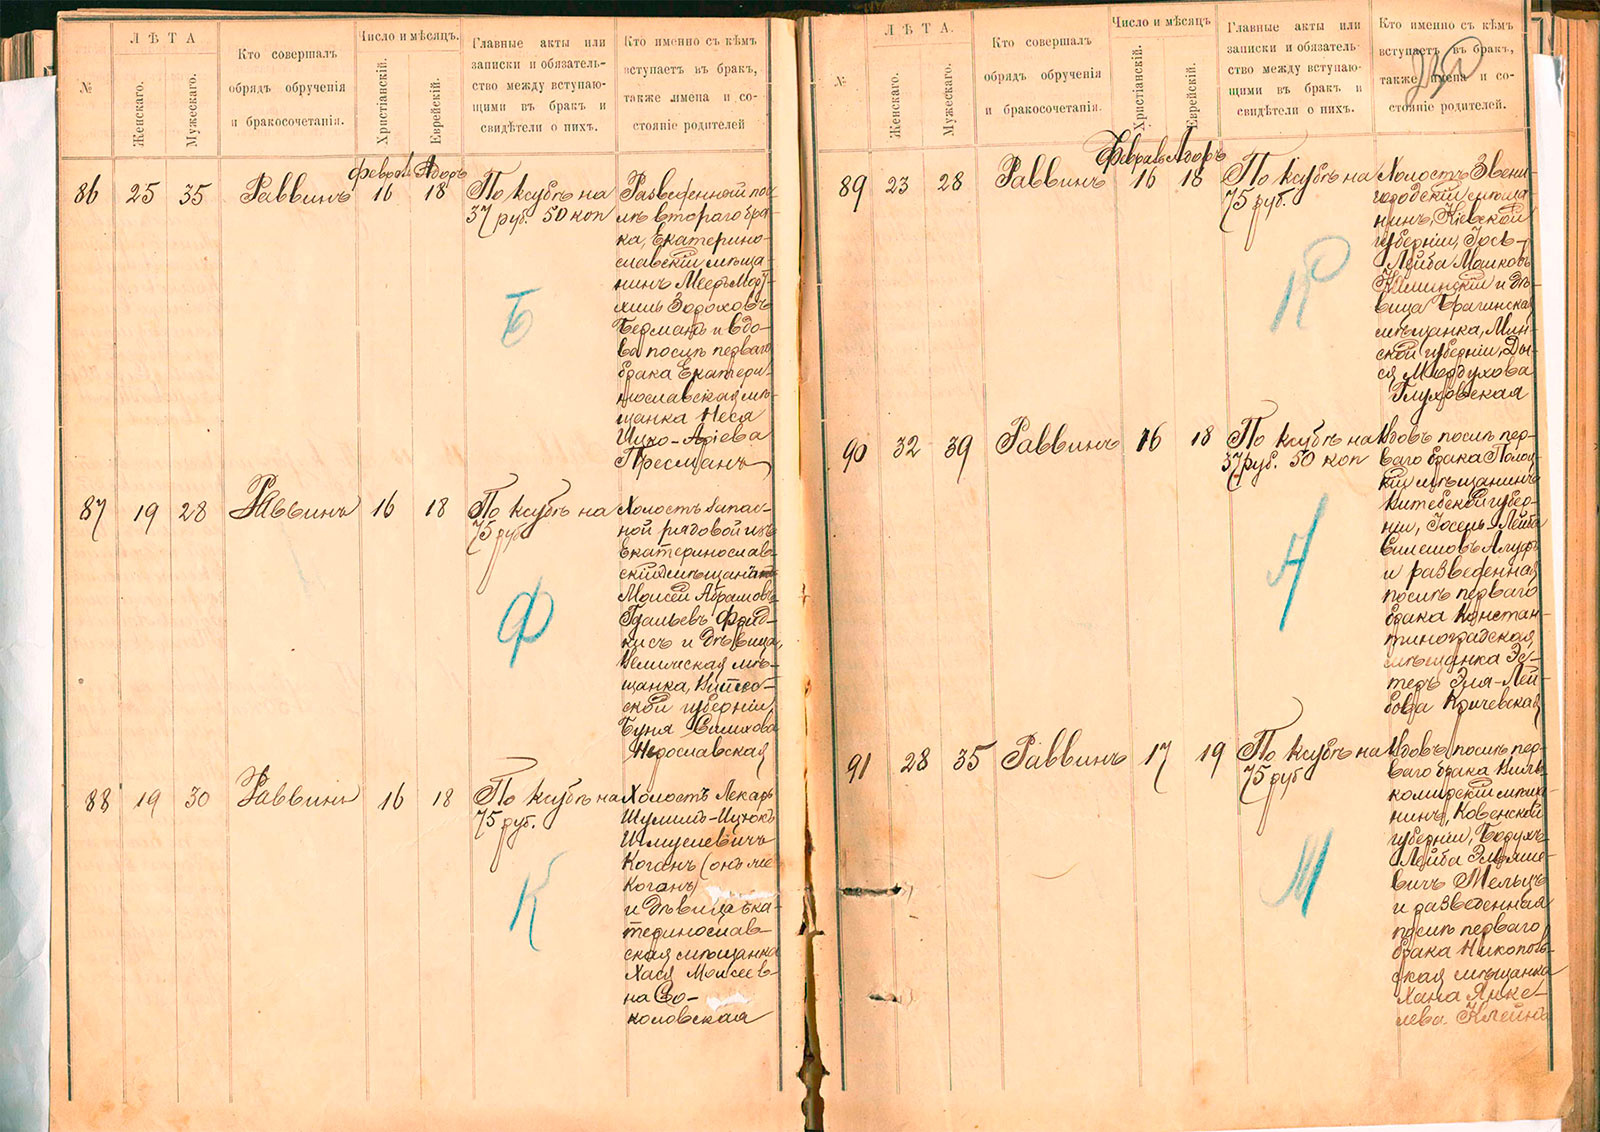 №
ЛѢТА
Женскаго.
Мужескаго.
Кто совершалъ
обрядъ обрученія
и бракосочетанія.
Число и мѣсяцъ.
Христіанскій.
Еврейскій.
Главные акты или
записки и обязатель-
ство между вступаю-
щими въ бракъ и
свидѣтели о нихъ.
Кто именно съ кѣмъ
вступаетъ въ бракъ,
также имена и со-
стояніе родителей
86 25 35 Раввинъ
16 18
По ктубѣ на
37 руб. 50 коп
Разведенный пос-
лѣ втораго бра-
ка, Екатерино-
славскій мѣща-
нинъ Мееръ
Берманъ и вдо-
ва послѣ перваго
брака Екатери-
нославская мѣ-
щанка Неся
Ицко-Аріева
Пресманъ
Б
87 19 28 Раввинъ 16 18
По ктубѣ на
75 руб
Холостъ запас-
ной рядовой изъ
Екатеринослав-
скихъ мѣщанъ
Моисей Абрамовъ-
и дѣвица,
мѣ-
щанка,
ской губерніи,
Буня
Ф
88 19 30 Раввинъ 16 18
По ктубѣ на
75 руб.
Холостъ Лекарь
Шулимъ-Ицхокъ
Шмулевичъ
Коганъ (онъ же
Коганъ)
и дѣвица Ека-
теринослав-
ская мѣщанка
Хася Моисеев-
на Со-
коловская
К
№
ЛѢТА.
Женскаго.
Мужескаго.
Кто совершалъ
обрядъ обрученія
и бракосочетанія.
Число и мѣсяцъ
Христіанскій.
Еврейскій.
Главные акты или
записки и обязатель-
ство между вступаю-
щими въ бракъ и
свидѣтели о нихъ.
Кто именно съ кѣмъ
вступаетъ въ бракъ,
также имена и со-
стояніе родителей.
89 23 28 Раввинъ
16 18
По ктубѣ на
75 руб.
Холостъ Звени-
городскій мѣща-
нинъ, Кіевской
губерніи, Іось-
Лейба Мошковъ
и дѣ-
вица Брагинская
мѣщанка, Мин-
ской губерніи, Ды-
ся Мордухова
Глуховская
90 32 39 Раввинъ 16 18
По ктубѣ на
37 руб. 50 коп
Вдовъ послѣ пер-
ваго брака Полоц-
кій мѣщанинъ
Витебской губер-
ніи, Іосель-Лейба
и разведенная
послѣ перваго
брака Констан-
тиноградская
мѣщанка Эс-
теръ Эля-Лей-
бова Кричевская
А
91 28 35 Раввинъ 17 19
По ктубѣ на
75 руб
Вдовъ послѣ пер-
ваго брака Виль-
комирскій мѣща-
нинъ, Ковенской
губерніи, Борухъ-
Лейба Эльяше-
вичъ Мельцъ
и разведенная
послѣ перваго
брака Никополь-
ская мѣщанка
Хана Янке-
лева Клейнъ
М